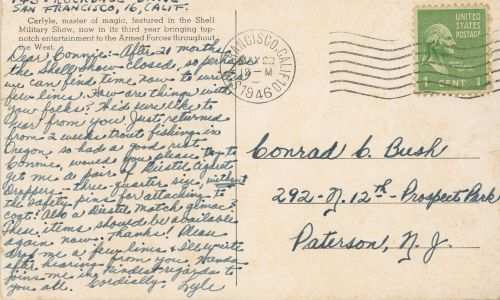 SAN FRANCISCO, 16, CALIF.
Carlyle, master of magic, featured in the Shell
Military Show, now in its third year bringing top-
notch entertainment to the Armed Forces throughout
the West.
Dear Connie:- After 21 months
the Shell show closed, so perhaps
we can find time now to write
few lines. How are things with
you folks? I'd sure like to
hear from you. Just returned
from 2 weeks trout fishing in
Oregon so had a good rest.
Connie, would you please try to
get me a pair of Diestel Cigaret
Droppers - three-quarter size, without
the safety pins for attaching to
coat? Also a Diestel Match gimac?
These items should be available
again now. Thanks! Please
drop me a few lines & I'll write
after hearing from you. Wanda
joins me in kindest regards to
you all. Cordially, Lyle
SAN FRANCISCO, CALIF. 10
MAY 23
M
1946
UNITED STATES
POSTAGE
1 CENT 1
Conrad C. Bush
292 - N. 12th - Prospect Park
Paterson, N. J.